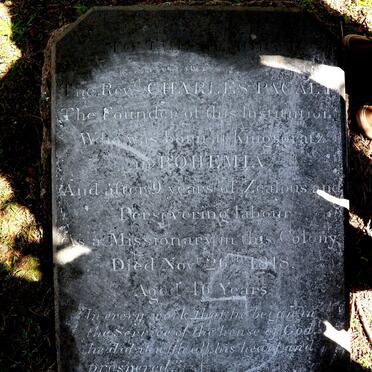 The Revd. CHARLES PACALT
The Founder of this Institution
Who was born at Königgratz
BOHEMIA
And after 9 years of Zealous and
Persevering labour
As a Missionary in this Colony
Died Nov. 1818
Aged 46 Years
In every work that he began in
the service of the house of God
he did it with all his heart and
prospered